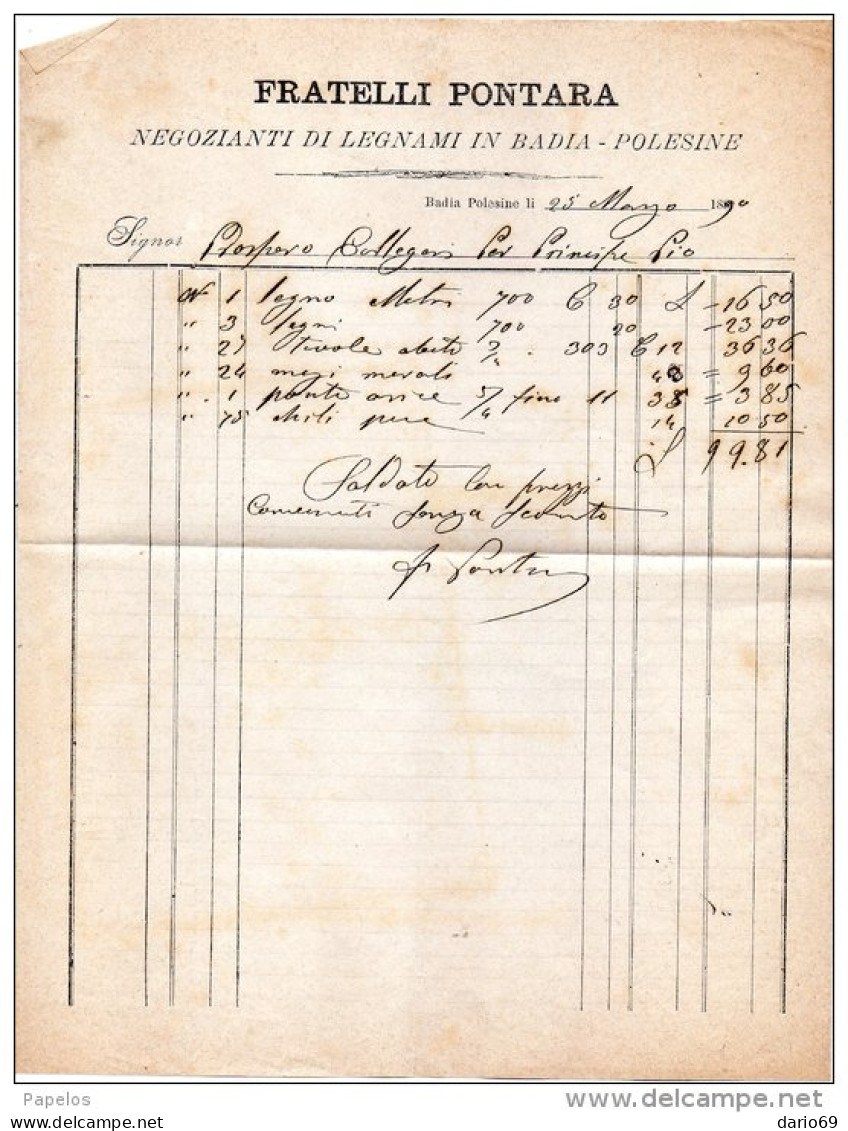 FRATELLI PONTARA
NEGOZIANTI DI LEGNAMI IN BADIA - POLESINE
Badia Polesine li 25 Marzo 1890
Signor Prospero Per Principe Pio
N 1 legno Metri 700 C 30 L - 16 50
" 3 legni 700 20 - 23 00
" 27 tavole abete 303 C 12 36 36
" 24 mezi morali " = 9 60
" 1 ponte fino 11 35 = 3 85
" 75 chili 14 10 50
L 99.81
Saldato con prezzi
senza sconto
Papelos
www.delcampe.net
dario69